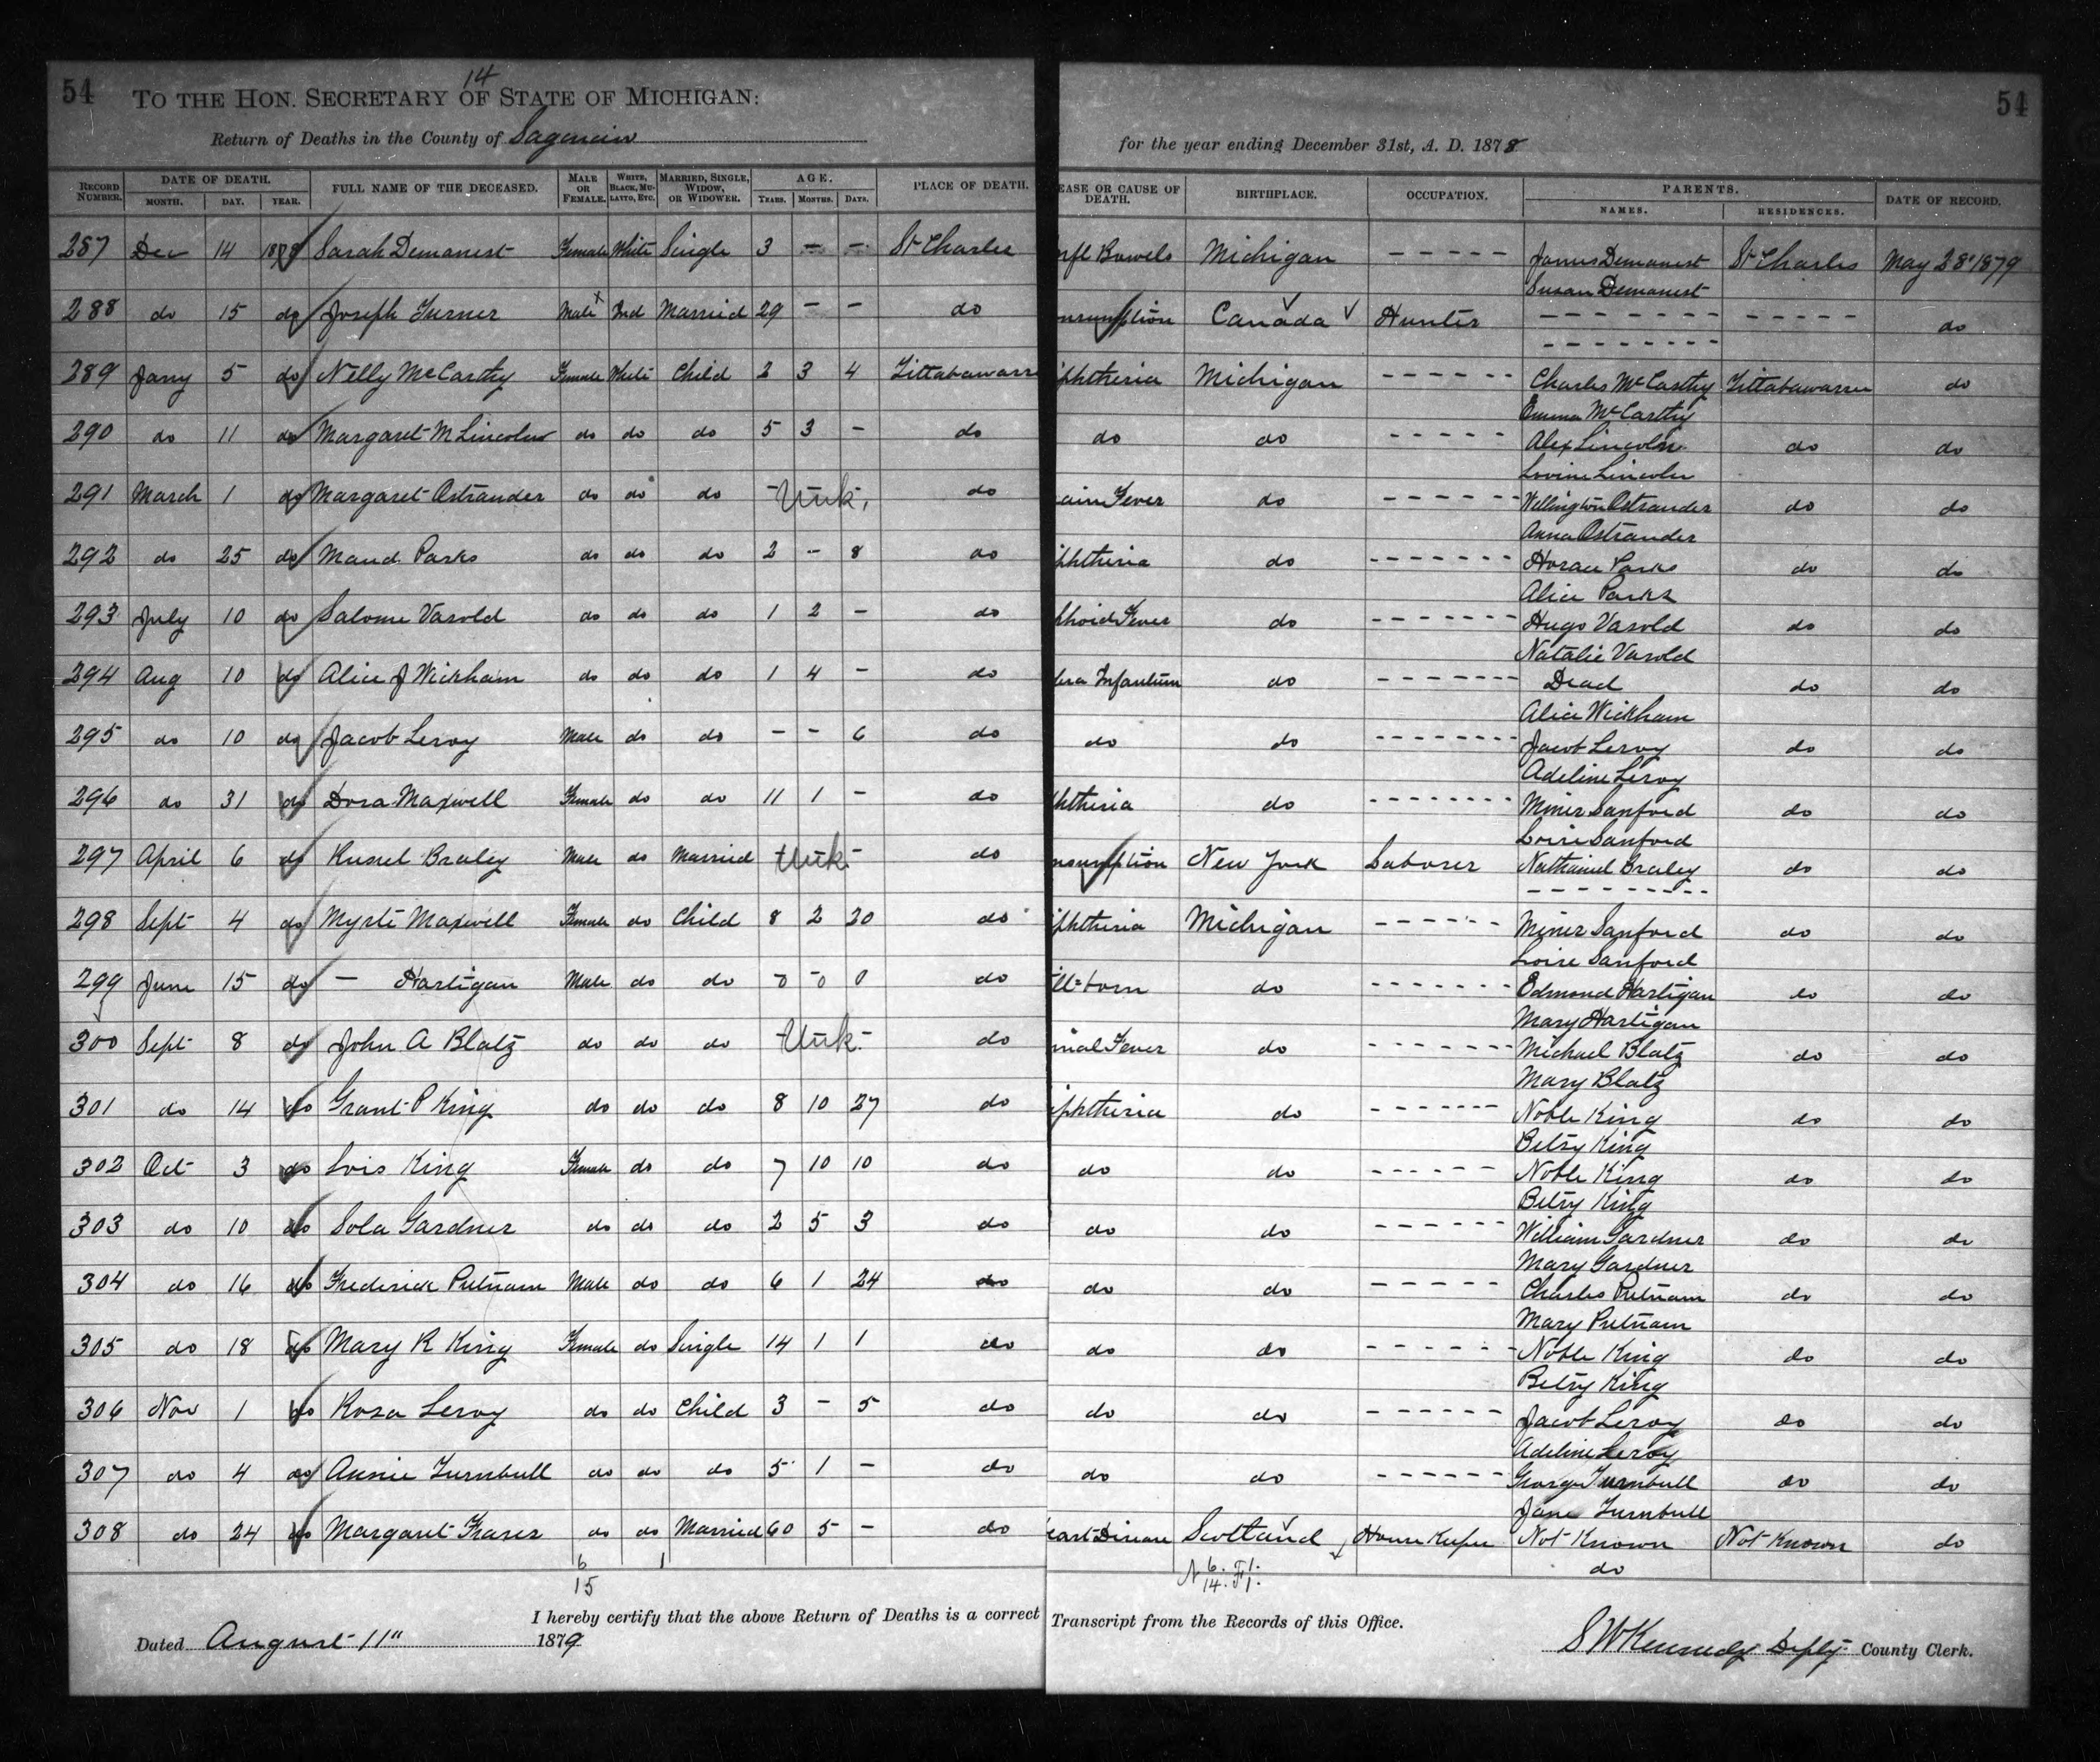 54
14
TO THE HON. SECRETARY OF STATE OF MICHIGAN:
54
Return of Deaths in the County of Saginaw
for the year ending December 31st, A. D. 1878
RECORD NUMBER. DATE OF DEATH. MONTH. DAY. YEAR. FULL NAME OF THE DECEASED. MALE OR FEMALE. WHITE, BLACK, MULATTO, ETC. MARRIED, SINGLE, WIDOW, OR WIDOWER. AGE. YEARS. MONTHS. DAYS. PLACE OF DEATH. EASE OR CAUSE OF DEATH. BIRTHPLACE. OCCUPATION. PARENTS. NAMES. RESIDENCES. DATE OF RECORD.
287 Dec 14 1878 Sarah Demanest Female White Single 3 - - St Charles nfl Bowels Michigan - - - - - James Demanest St Charles May 28 1879
Susan Demanest
288 do 15 do Joseph Turner Male x Ind Married 29 - - do onsumption Canada Hunter - - - - - - - - - - - - do
- - - - - - - -
289 Jany 5 do Nelly McCarthy Female White Child 2 3 4 Tittabawass phtheria Michigan - - - - - - Charles McCarthy Tittabawassee do
Emma McCarthy
290 do 11 do Margaret M Lincoln do do do 5 3 - do do do - - - - - Alex Lincoln do do
Lovine Lincoln
291 March 1 do Margaret Ostrander do do do Unk. do ain Fever do - - - - - - Wellington Ostrander do do
Anna Ostrander
292 do 25 do Maud Parks do do do 2 - 8 do phtheria do - - - - - - - Horace Parks do do
Alice Parks
293 July 10 do Salome Varold do do do 1 2 - do phoid Fever do - - - - - - - Hugo Varold do do
Natalie Varold
294 Aug 10 do Alice J Wickham do do do 1 4 - do lera Infantum do - - - - - - - Dead do do
Alice Wickham
295 do 10 do Jacob Leroy Male do do - - 6 do do do - - - - - - - - Jacob Leroy do do
Adeline Leroy
296 do 31 do Dora Maxwell Female do do 11 1 - do htheria do - - - - - - - - Miner Sanford do do
Loise Sanford
297 April 6 do Russel Braley Male do Married Unk do nsumption New York Laborer Nathaniel Braley do do
- - - - - - - - -
298 Sept 4 do Myrte Maxwell Female do Child 8 2 20 do phtheria Michigan - - - - - - Miner Sanford do do
Loise Sanford
299 June 15 do - Hartigan Male do do 0 0 0 do ill-born do - - - - - - - Edmond Hartigan do do
Mary Hartigan
300 Sept 8 do John A Blatz do do do Unk. do inal Fever do - - - - - - - Michael Blatz do do
Mary Blatz
301 do 14 do Grant P King do do do 8 10 27 do iphtheria do - - - - - - - Noble King do do
Betsy King
302 Oct 3 do Lois King Female do do 7 10 10 do do do - - - - - - Noble King do do
Betsy King
303 do 10 do Lola Gardner do do do 2 5 3 do do do - - - - - - William Gardner do do
Mary Gardner
304 do 16 do Frederick Putnam Male do do 6 1 24 do do do - - - - - - Charles Putnam do do
Mary Putnam
305 do 18 do Mary R King Female do Single 14 1 1 do do do - - - - - - Noble King do do
Betsy King
306 Nov 1 do Rosa Leroy do do Child 3 - 5 do do do - - - - - - Jacob Leroy do do
Adeline Leroy
307 do 4 do Annie Turnbull do do do 5 1 - do do do - - - - - - George Turnbull do do
Jane Turnbull
308 do 24 do Margaret Fraser do do Married 60 5 - do eart Disease Scotland House Keeper Not Known Not Known do
do
6 1
15
N 6. F1.
14. F1.
I hereby certify that the above Return of Deaths is a correct Transcript from the Records of this Office.
Dated August 11" 1879
S W Kennedy Depty County Clerk.